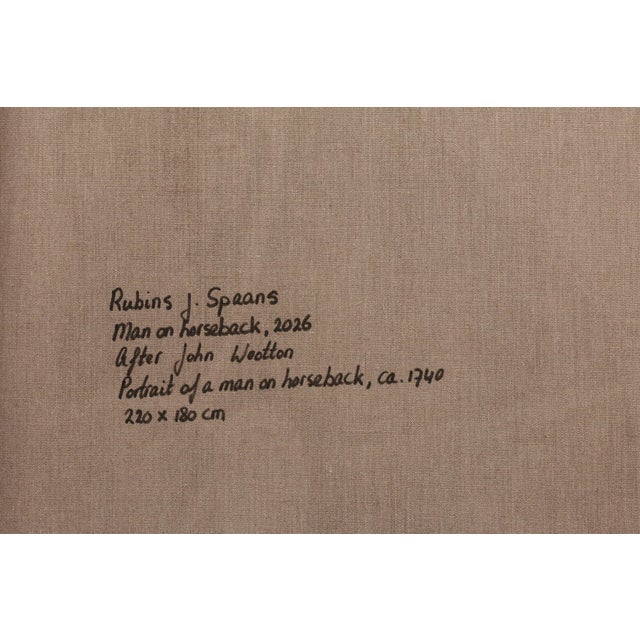 Rubins J. Spaans
Man on horseback, 2026
After John Wootton
Portrait of a man on horseback, ca. 1740
220 x 180 cm